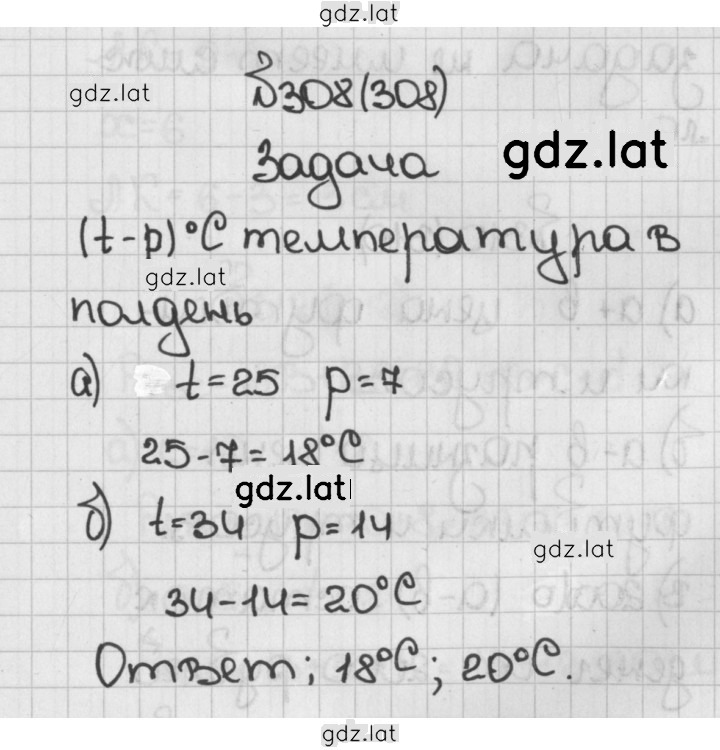 gdz.lat
№308(308)
gdz.lat
Задача
gdz.lat
(t-p)°С температура в
gdz.lat
полдень
а) t=25 p=7
25-7=18°С
gdz.lat
б) t=34 p=14
gdz.lat
34-14=20°С
Ответ; 18°С; 20°С.
gdz.lat